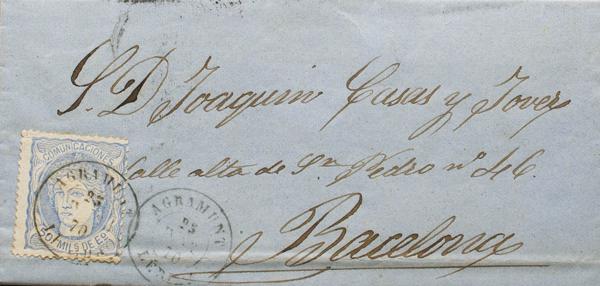 S. D. Joaquin Casas y Jover
Calle alta de Sn. Pedro nº
Barcelona
COMUNICACIONES
50 MILS DE E
AGRAMUNT
25
70
AGRAMUNT
25
70